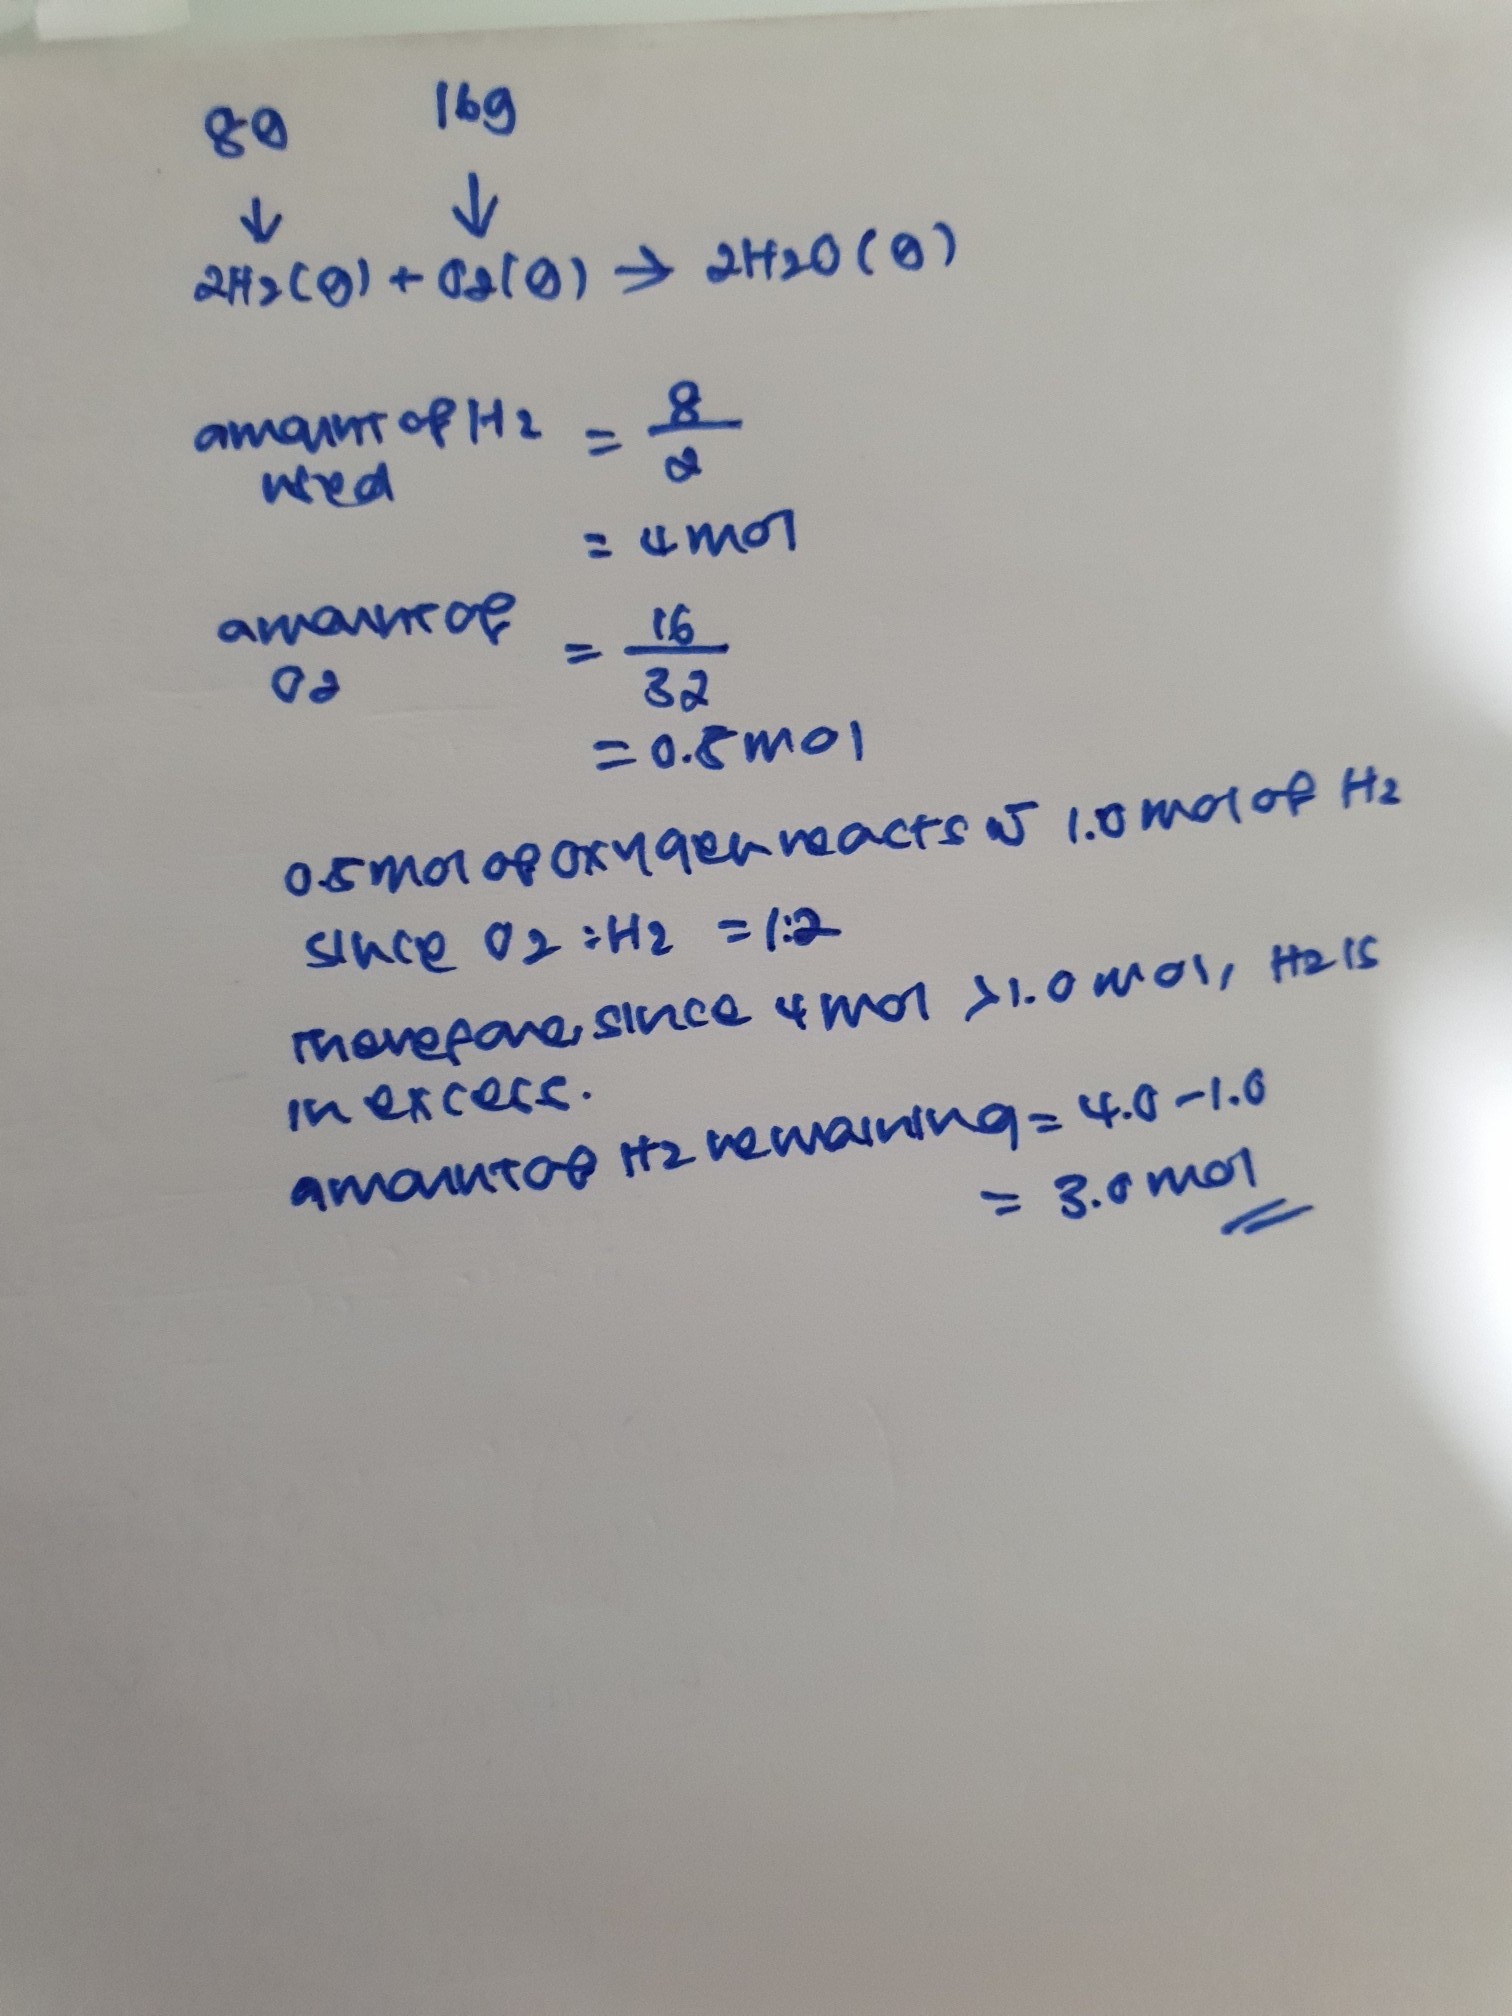 8g 16g
↓ ↓
2H2(g) + O2(g) → 2H2O(g)
amount of H2 used = 8/2
= 4 mol
amount of O2 = 16/32
= 0.5 mol
0.5 mol of oxygen reacts w 1.0 mol of H2
since O2 : H2 = 1:2
Therefore, since 4 mol > 1.0 mol, H2 is
in excess.
amount of H2 remaining = 4.0 - 1.0
= 3.0 mol